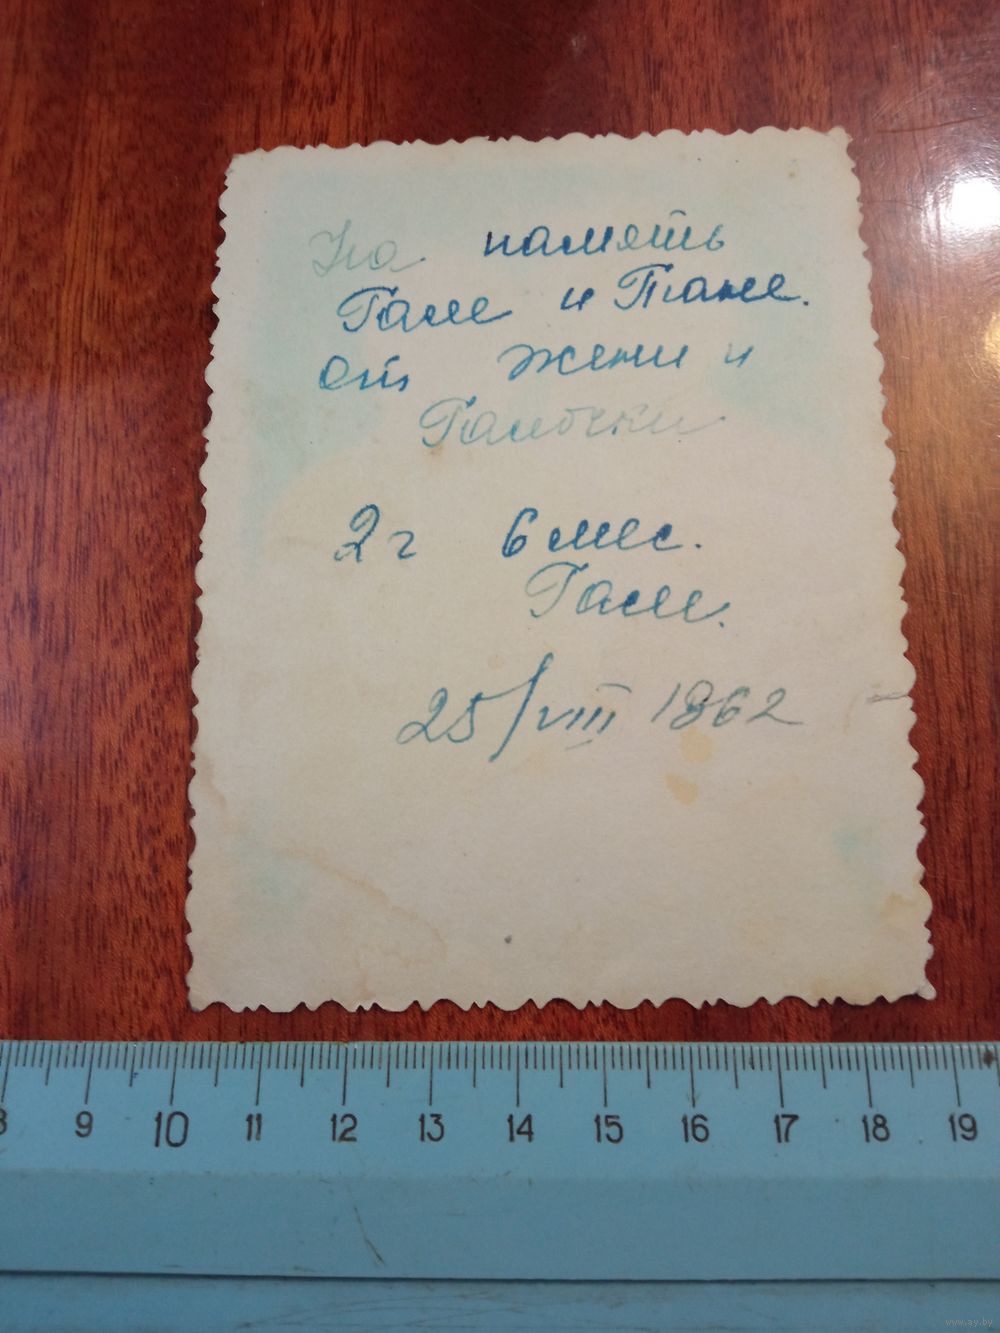 На память
Гале и Тане.
от Жени и
Галочки
2 г 6 мес.
Гале.
25/VIII 1962
8 9 10 11 12 13 14 15 16 17 18 19
www.ay.by